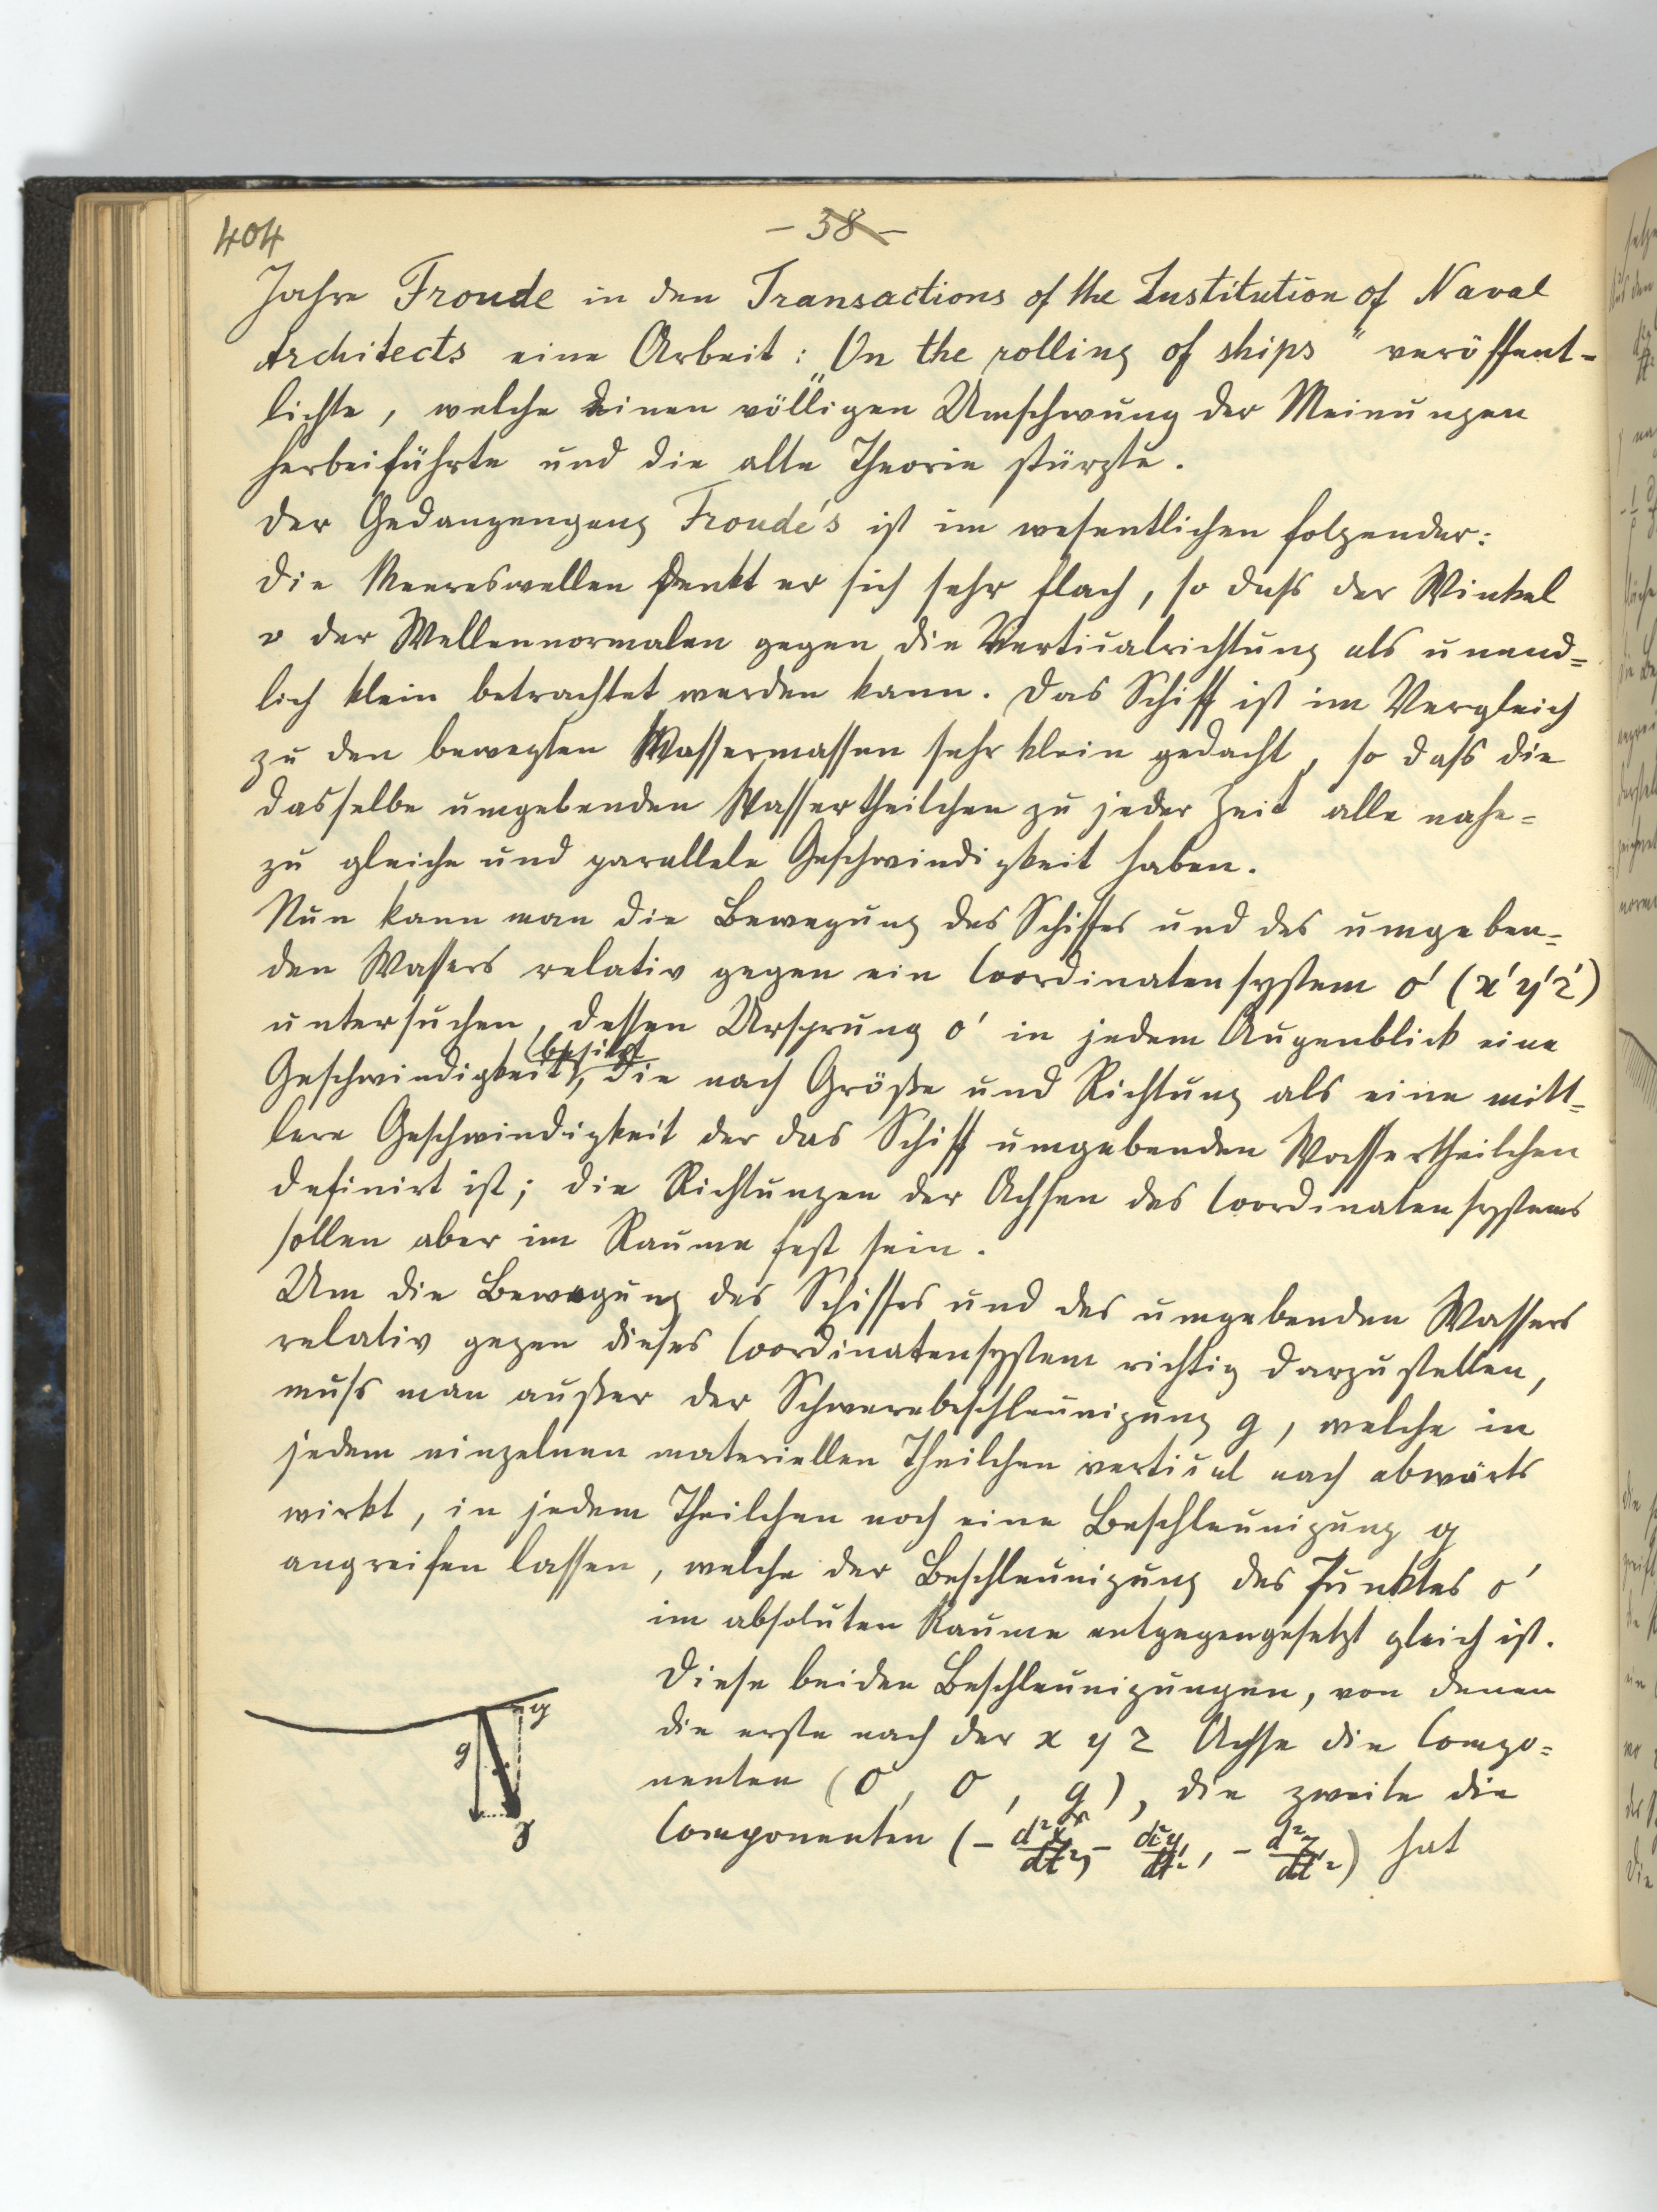 404
- 38 -
Jahre Froude in den Transactions of the Institution of Naval
Architects eine Arbeit: „On the rolling of ships“ veröffent-
lichte, welche einen völligen Umschwung der Meinungen
herbeiführte und die alte Theorie stürzte.
Der Gedangengang Froude's ist im wesentlichen folgender:
Die Meereswellen denkt er sich sehr flach, so daſs der Winkel
υ der Wellennormalen gegen die Verticalrichtung als unend=
lich klein betrachtet werden kann. Das Schiff ist im Vergleich
zu den bewegten Wassermassen sehr klein gedacht, so daſs die
dasselbe umgebenden Wassertheilchen zu jeder Zeit alle nahe=
zu gleiche und parallele Geschwindigkeit haben.
Nun kann man die Bewegung des Schiffes und des umgeben=
den Wassers relativ gegen ein Coordinatensystem o' (x'y'z')
untersuchen, dessen Ursprung o' in jedem Augenblick eine
(besitzt
Geschwindigkeit, die nach Größe und Richtung als eine mitt=
lere Geschwindigkeit der das Schiff umgebenden Wassertheilchen
definirt ist; die Richtungen der Achsen des Coordinatensystems
sollen aber im Raume fest sein.
Um die Bewegung des Schiffes und des umgebenden Wassers
relativ gegen dieses Coordinatensystem richtig darzustellen,
muſs man außer der Schwerebeschleunigung g, welche in
jedem einzelnen materiellen Theilchen vertical nach abwärts
wirkt, in jedem Theilchen noch eine Beschleunigung q
angreifen lassen, welche der Beschleunigung des Punktes o'
im absoluten Raume entgegengesetzt gleich ist.
Diese beiden Beschleunigungen, von denen
die erste nach der x y z Achse die Compo=
nenten (0, 0, g), die zweite die
Componenten (- d²x/dt², - d²y/dt², - d²z/dt²) hat
q
g
γ